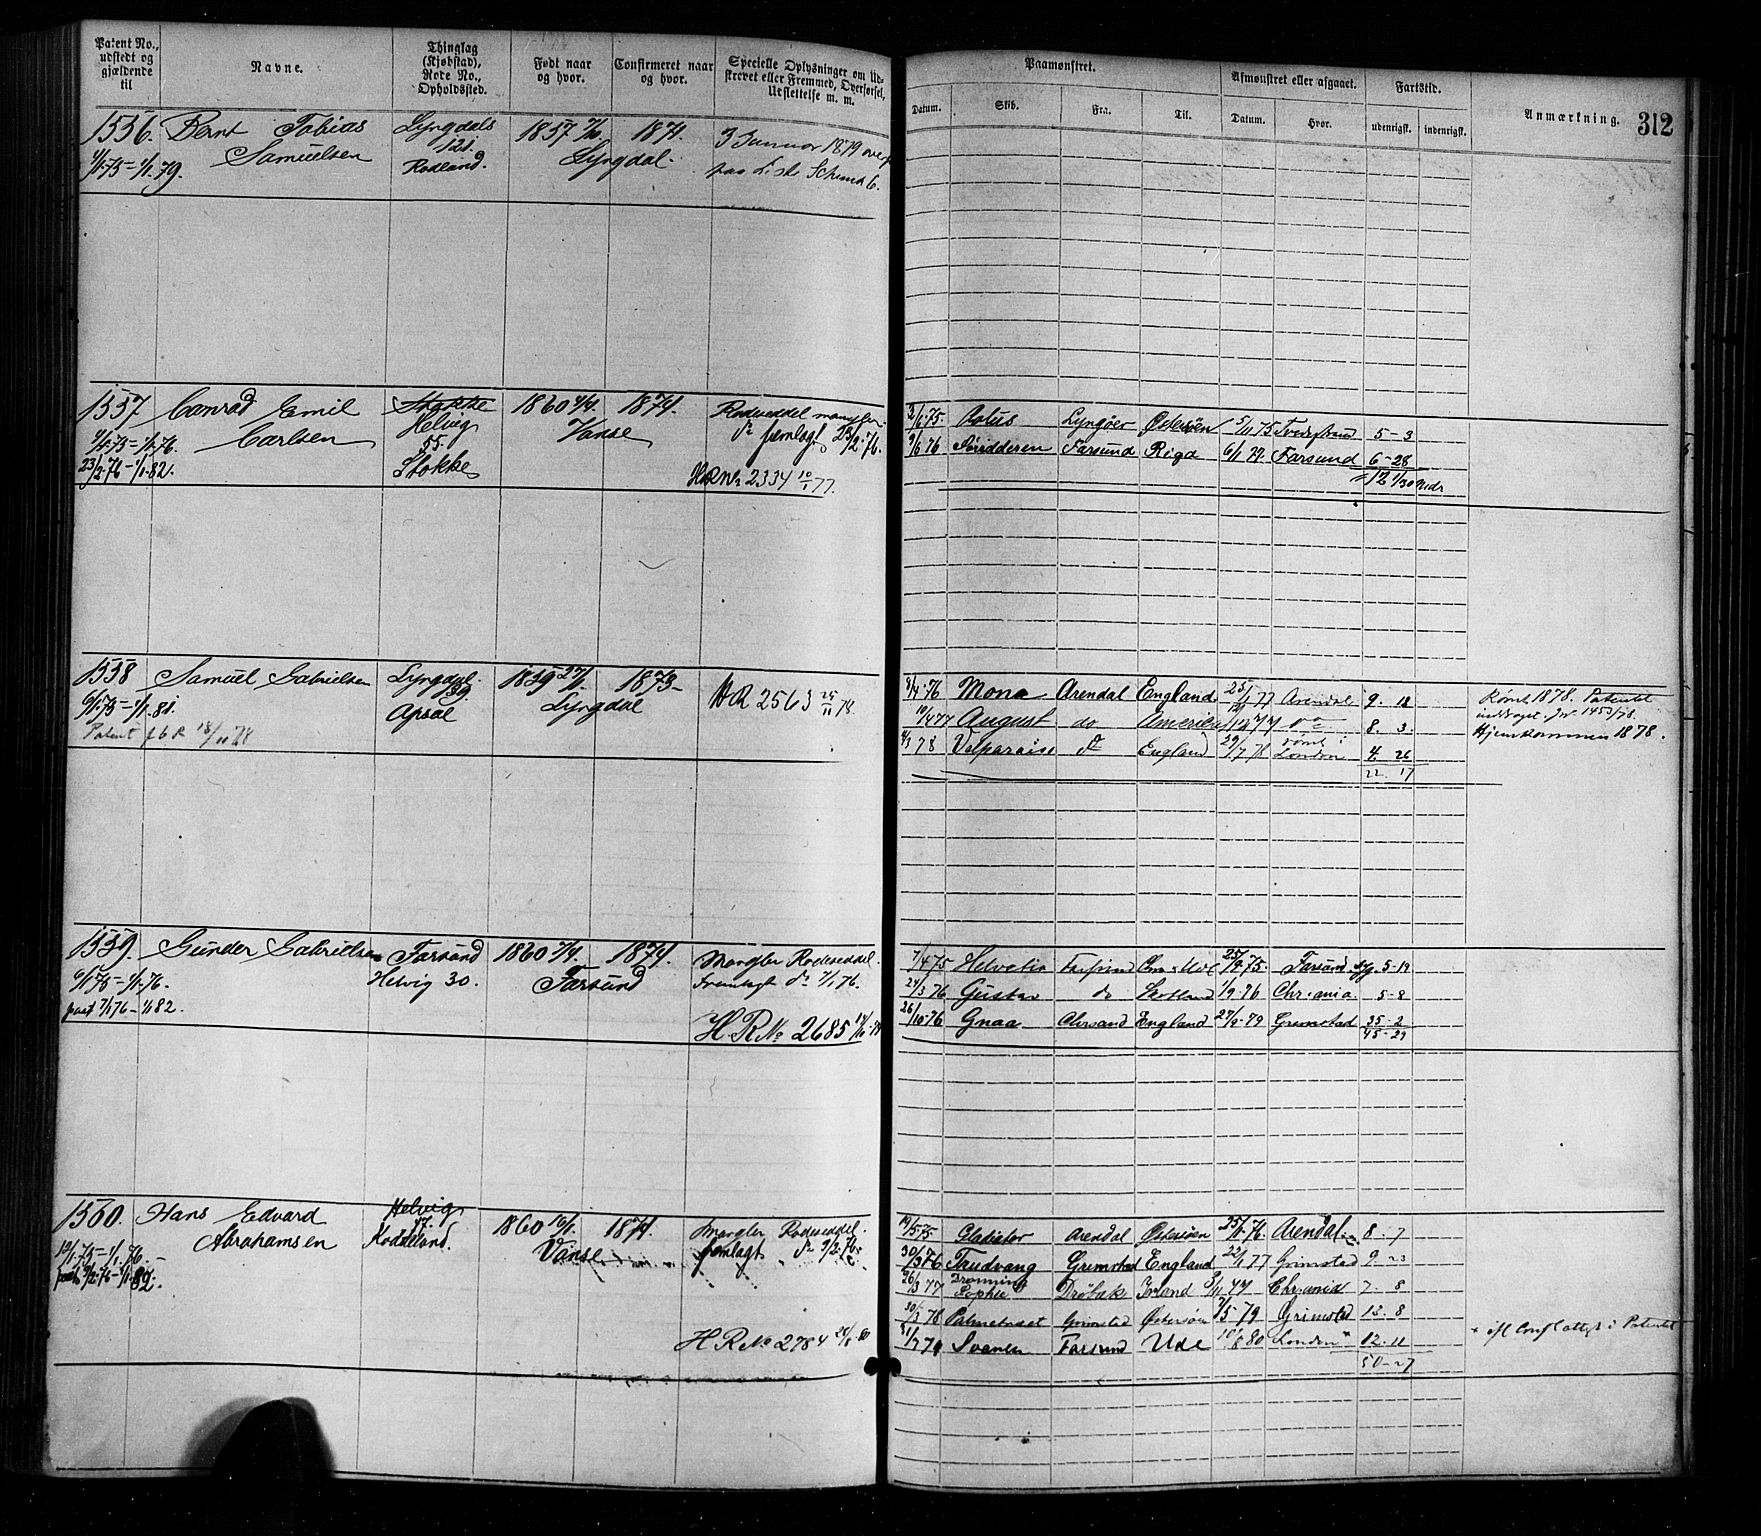 Patent No., udstedt og gjældende til
Navne.
Thinglag (Kjøbstad), Rode No., Opholdssted.
Født naar og hvor.
Confirmeret naar og hvor.
Specielle Oplysninger om Udskrevet eller Fremmed, Overførsel, Udslettelse m. m.
Paamønstret.
Afmønstret eller afgaaet.
Fartstid.
Datum.
Skib.
Fra.
Til.
Datum.
Hvor.
udenrigsk.
indenrigsk.
Anmærkning.
312
1556. Bernt Tobias Lyngdals 1857 7/10 1874. 3 Januar 1879 overf
Samuelsen 121. Lyngdal.
1/1-75 = 1/1.79. Rodland. paa Liste Schema 6.
1557 Conrad Emil Stokke 1860 4/4 1874. Rodeseddel mangler.
Carlsen Helvig Vanse do fremlagt 23/2-76.
55.
23/2.76 - 1/1.82. Stokke HRNo 2334 10/1 77.
2/6-75. Lotus Lyngøer Østersöen 5/11 75 Tvedestrand 5-3
9/6 76 Nridderen Farsund Riga 6/1 77. Farsund 6-28
1558 Samuel Gabrielsen Lyngdal. 1839 27/1 1873- HR 2563 25/11 78.
139 Lyngdal
6/1-75 - 1/1.81. Apsal
8/4-76 Mona Arendal England 25/1 77 Arendal 9. 18 Rømt 1878. Patentet
10/4 77 August do America do 8. 3. inddraget. Jr 1453/78.
78 Valparaiso do England 29/7 78 rømt i London 4. 26 Hjemkommen 1878.
22. 17
1559. Gunder Gabrielsen Farsund 1860 7/4. 1874. Mangler Rodeseddel.
6/1 75 - 1/1.76. Helvig 30. Farsund Fremlagt do 7/1 76.
7/1 76 - 1/1 82. H.R No 2685
7/4 75 Helvetia Farsund 25/9 75. Farsund 5-19
24/3 76 Gustav do Skotland 1/9-76 Chr.ania 5-8
26/10-76 Gnaa Chrsand England 27/9-79 Grimstad 35-2
45-29
1560. Hans Edvard Helvig 1860 16/1 1874. Mangler Rodeseddel.
Abrahamsen 17. Vanse fremlagt do 9/2-76.
12/1.75 = 1/1 76 - Koddeland.
9/2-76 - 1/1-82.
H R No 2784
19/5-75 Gladiator Arendal Østersöen 25/11-76. Arendal 8. 7
30/3 76 Trudvang Grimstad England 22/1 77 Grimstad 9-23
26/3 77 Dronning Sophie Drøbak Irland 3/11 77 Chr.ania 7-8
30/3 78 Grimstad Østersöen 7/5 79 Grimstad 12-8
31/7 79 Svanen Farsund Ude 10/8 80 London + 12-11
50-27